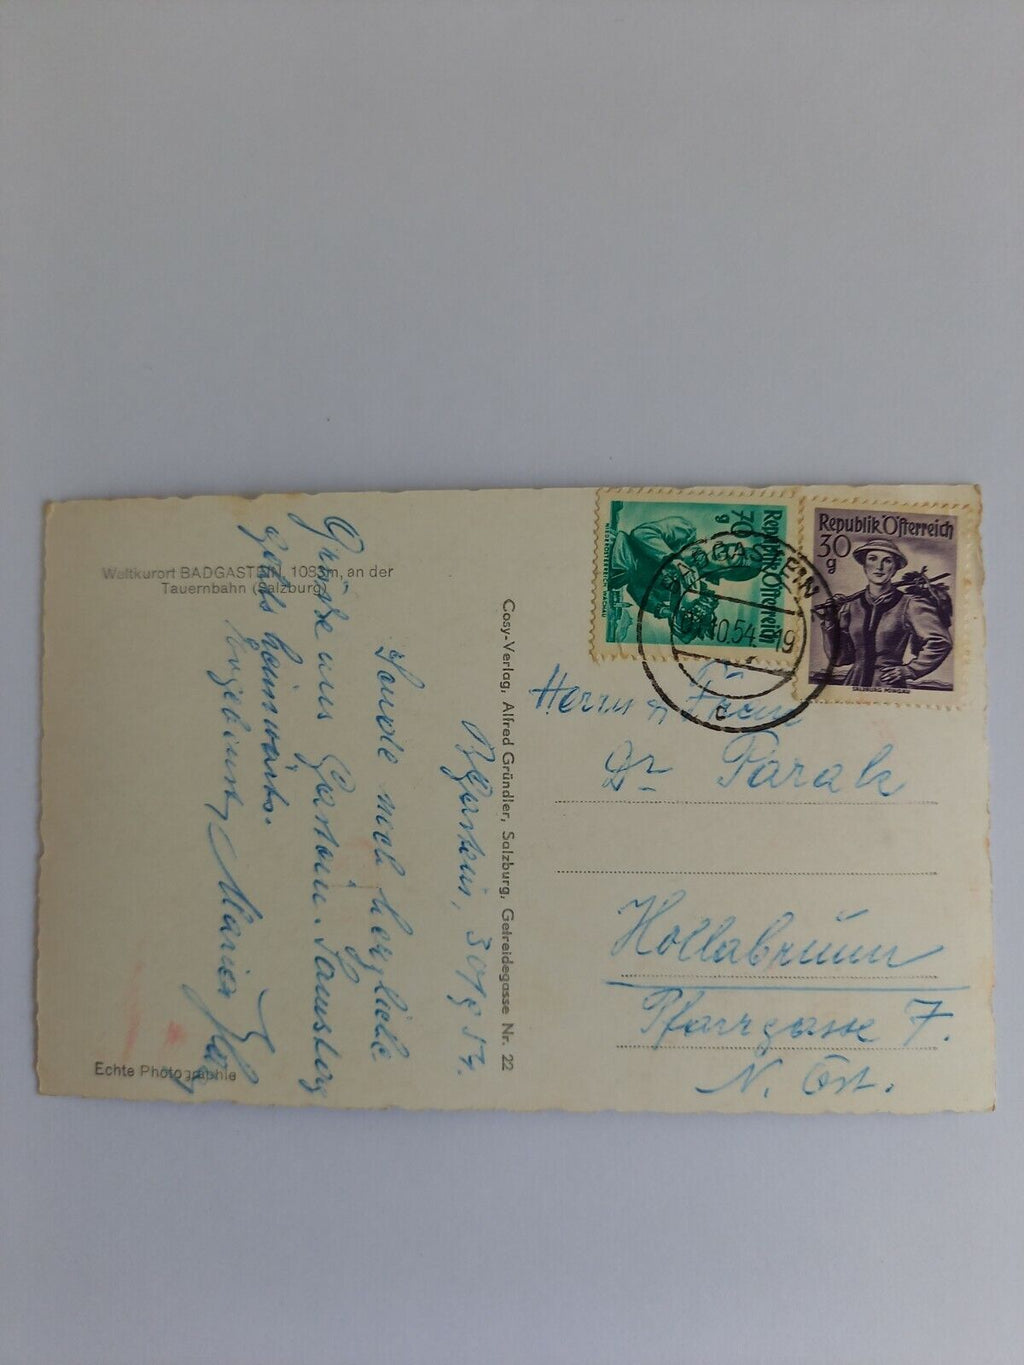 Weltkurort BADGASTEIN, 1083m, an der
Tauernbahn (Salzburg)
Echte Photographie
Cosy-Verlag, Alfred Gründler, Salzburg, Getreidegasse Nr. 22
Bgastein, 30/9 54.
Sende noch herzliche
Grüße aus Gastein. Samstag
geht's heimwärts.
Maria
Republik Österreich
70 g
NIEDERÖSTERREICH WACHAU
Republik Österreich
30 g
SALZBURG PINZGAU
BADGASTEIN
10.54-19
c
Herrn u Frau
Dr Parak
Hollabrunn
Pfarrgasse 7.
N. Öst.